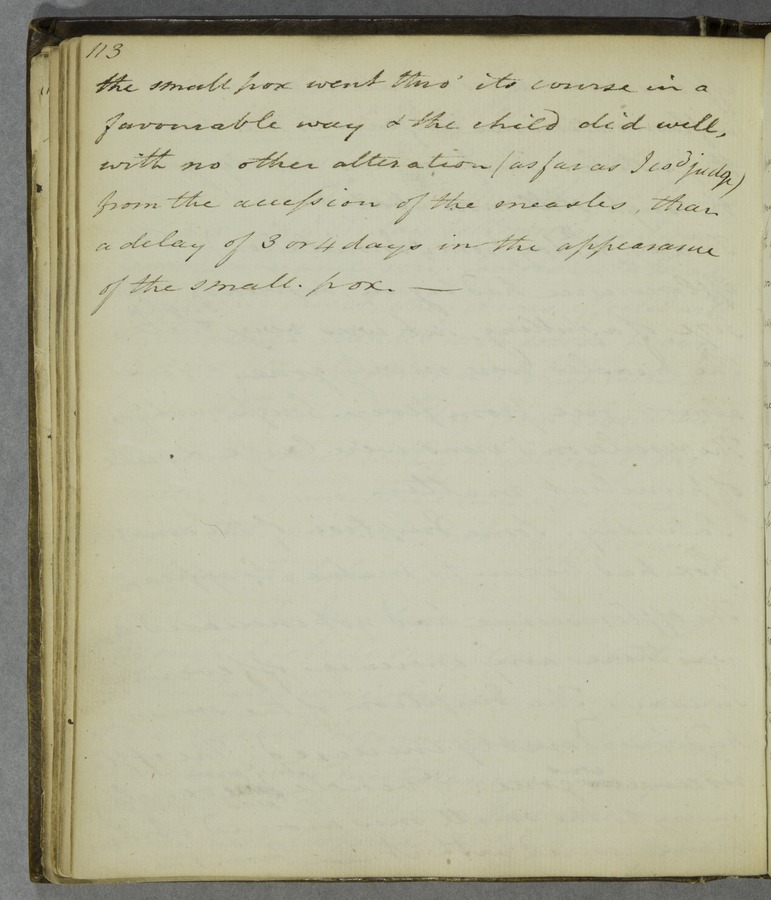 113
the small pox went thro' its course in a
favourable way & the child did well,
with no other alteration (as far as I cod judge)
from the accession of the measles, than
a delay of 3 or 4 days in the appearance
of the small-pox. —